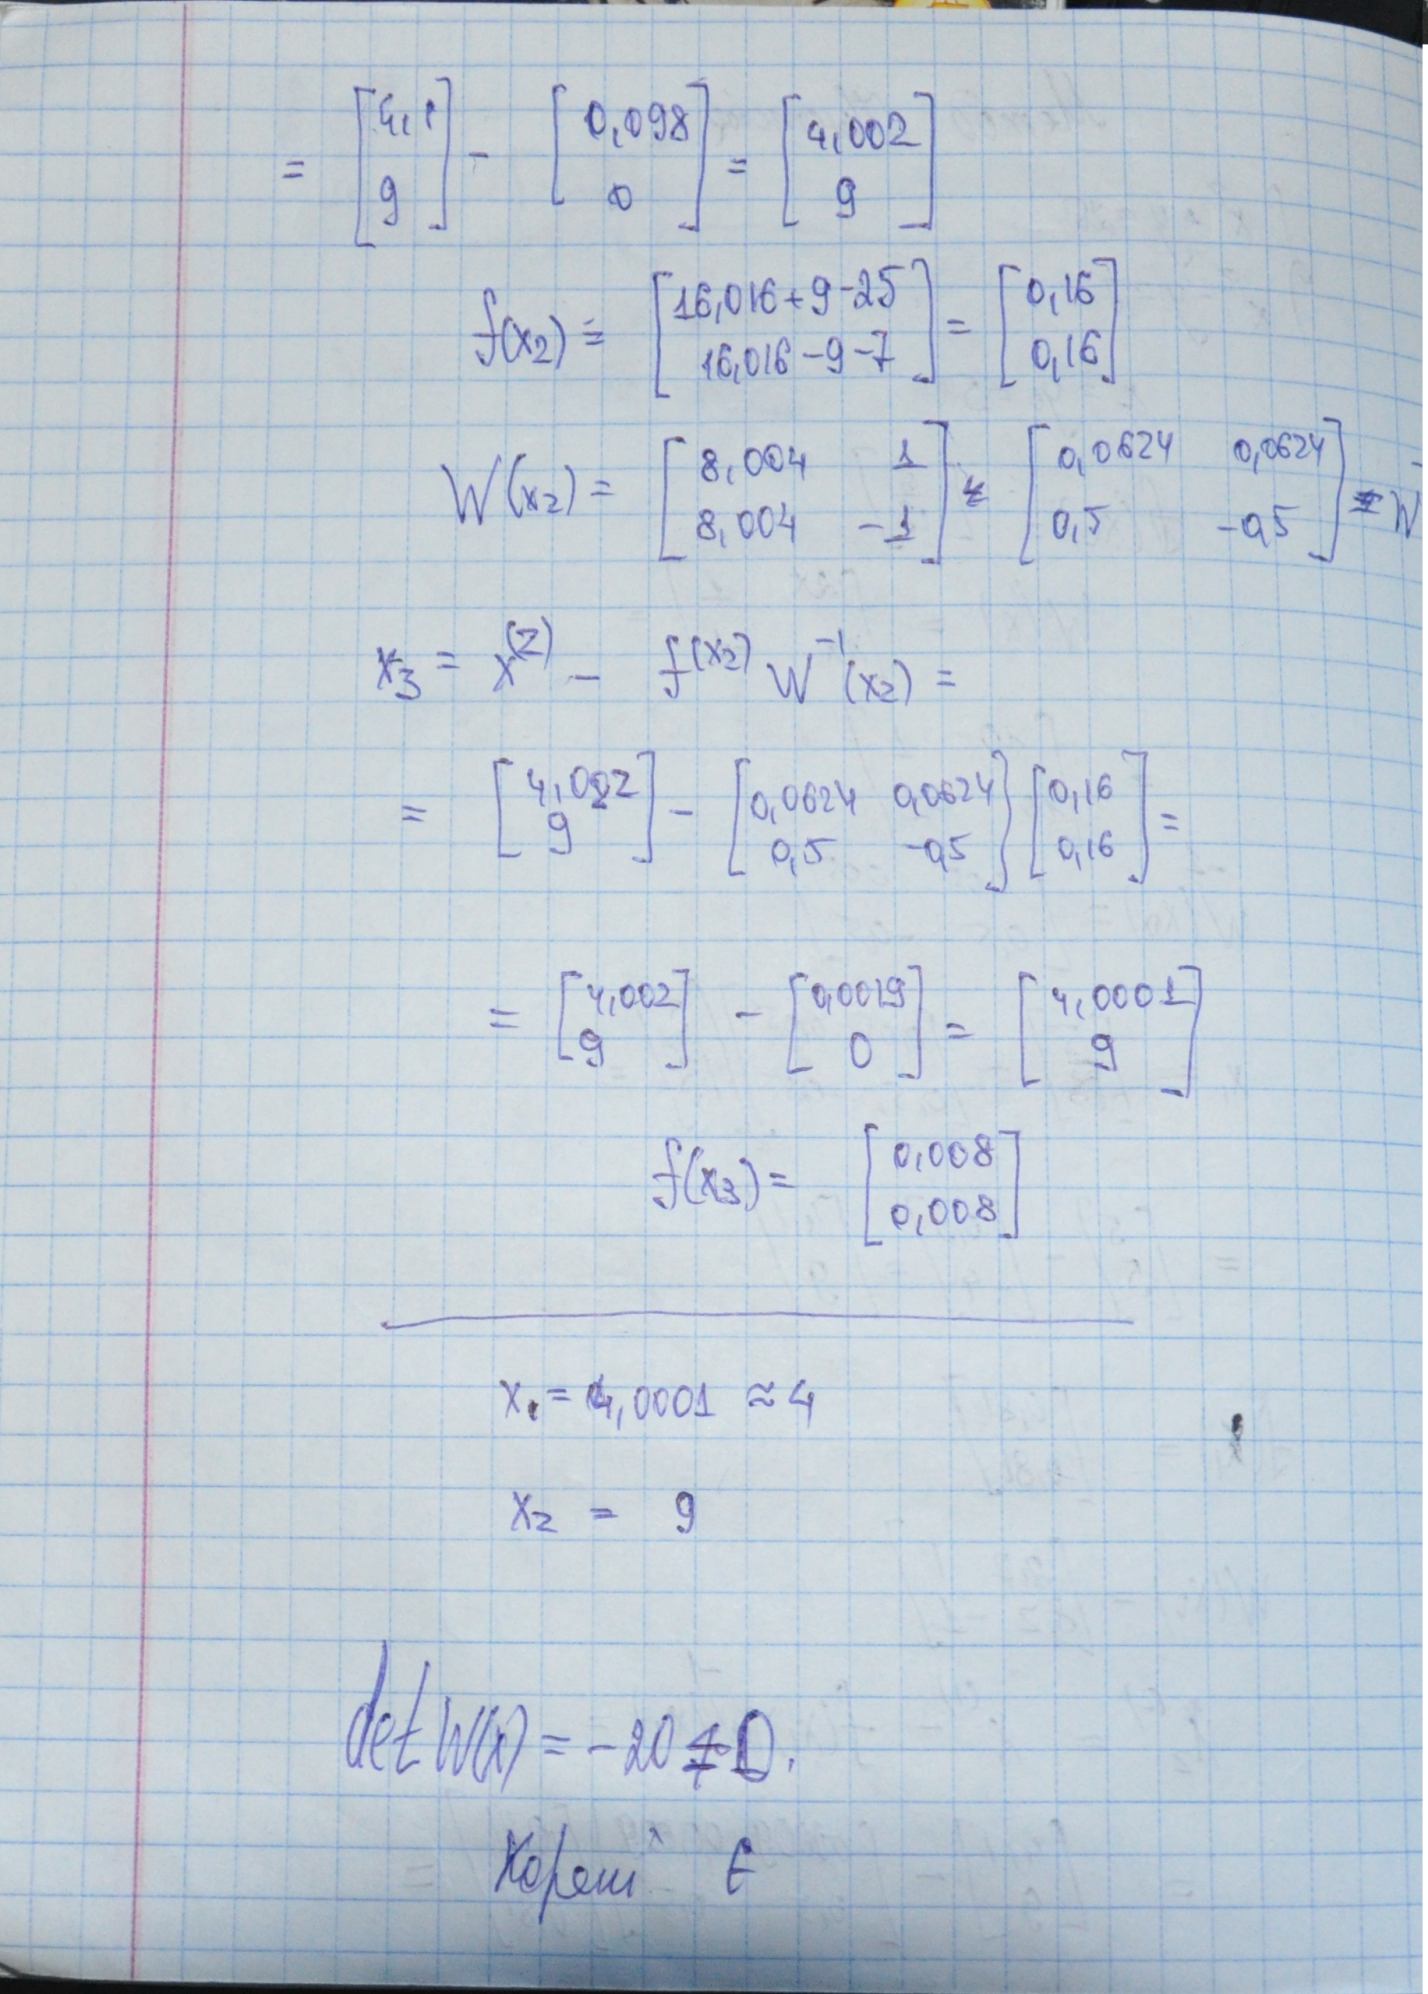 = [4,1 9] - [0,098 0] = [4,002 9]
f(x₂) = [16,016+9-25 16,016-9-7] = [0,16 0,16]
W(x₂) = [8,004 1 8,004 -1] [0,0624 0,0624 0,5 -0,5] = W
x₃ = x⁽²⁾ - f(x₂) W⁻¹(x₂) =
= [4,002 9] - [0,0624 0,0624 0,5 -0,5] [0,16 0,16] =
= [4,002 9] - [0,0019 0] = [4,0001 9]
f(x₃) = [0,008 0,008]
x₁ = 4,0001 ≈ 4
x₂ = 9
det W(x) = -20 ≠ 0.
Корені є